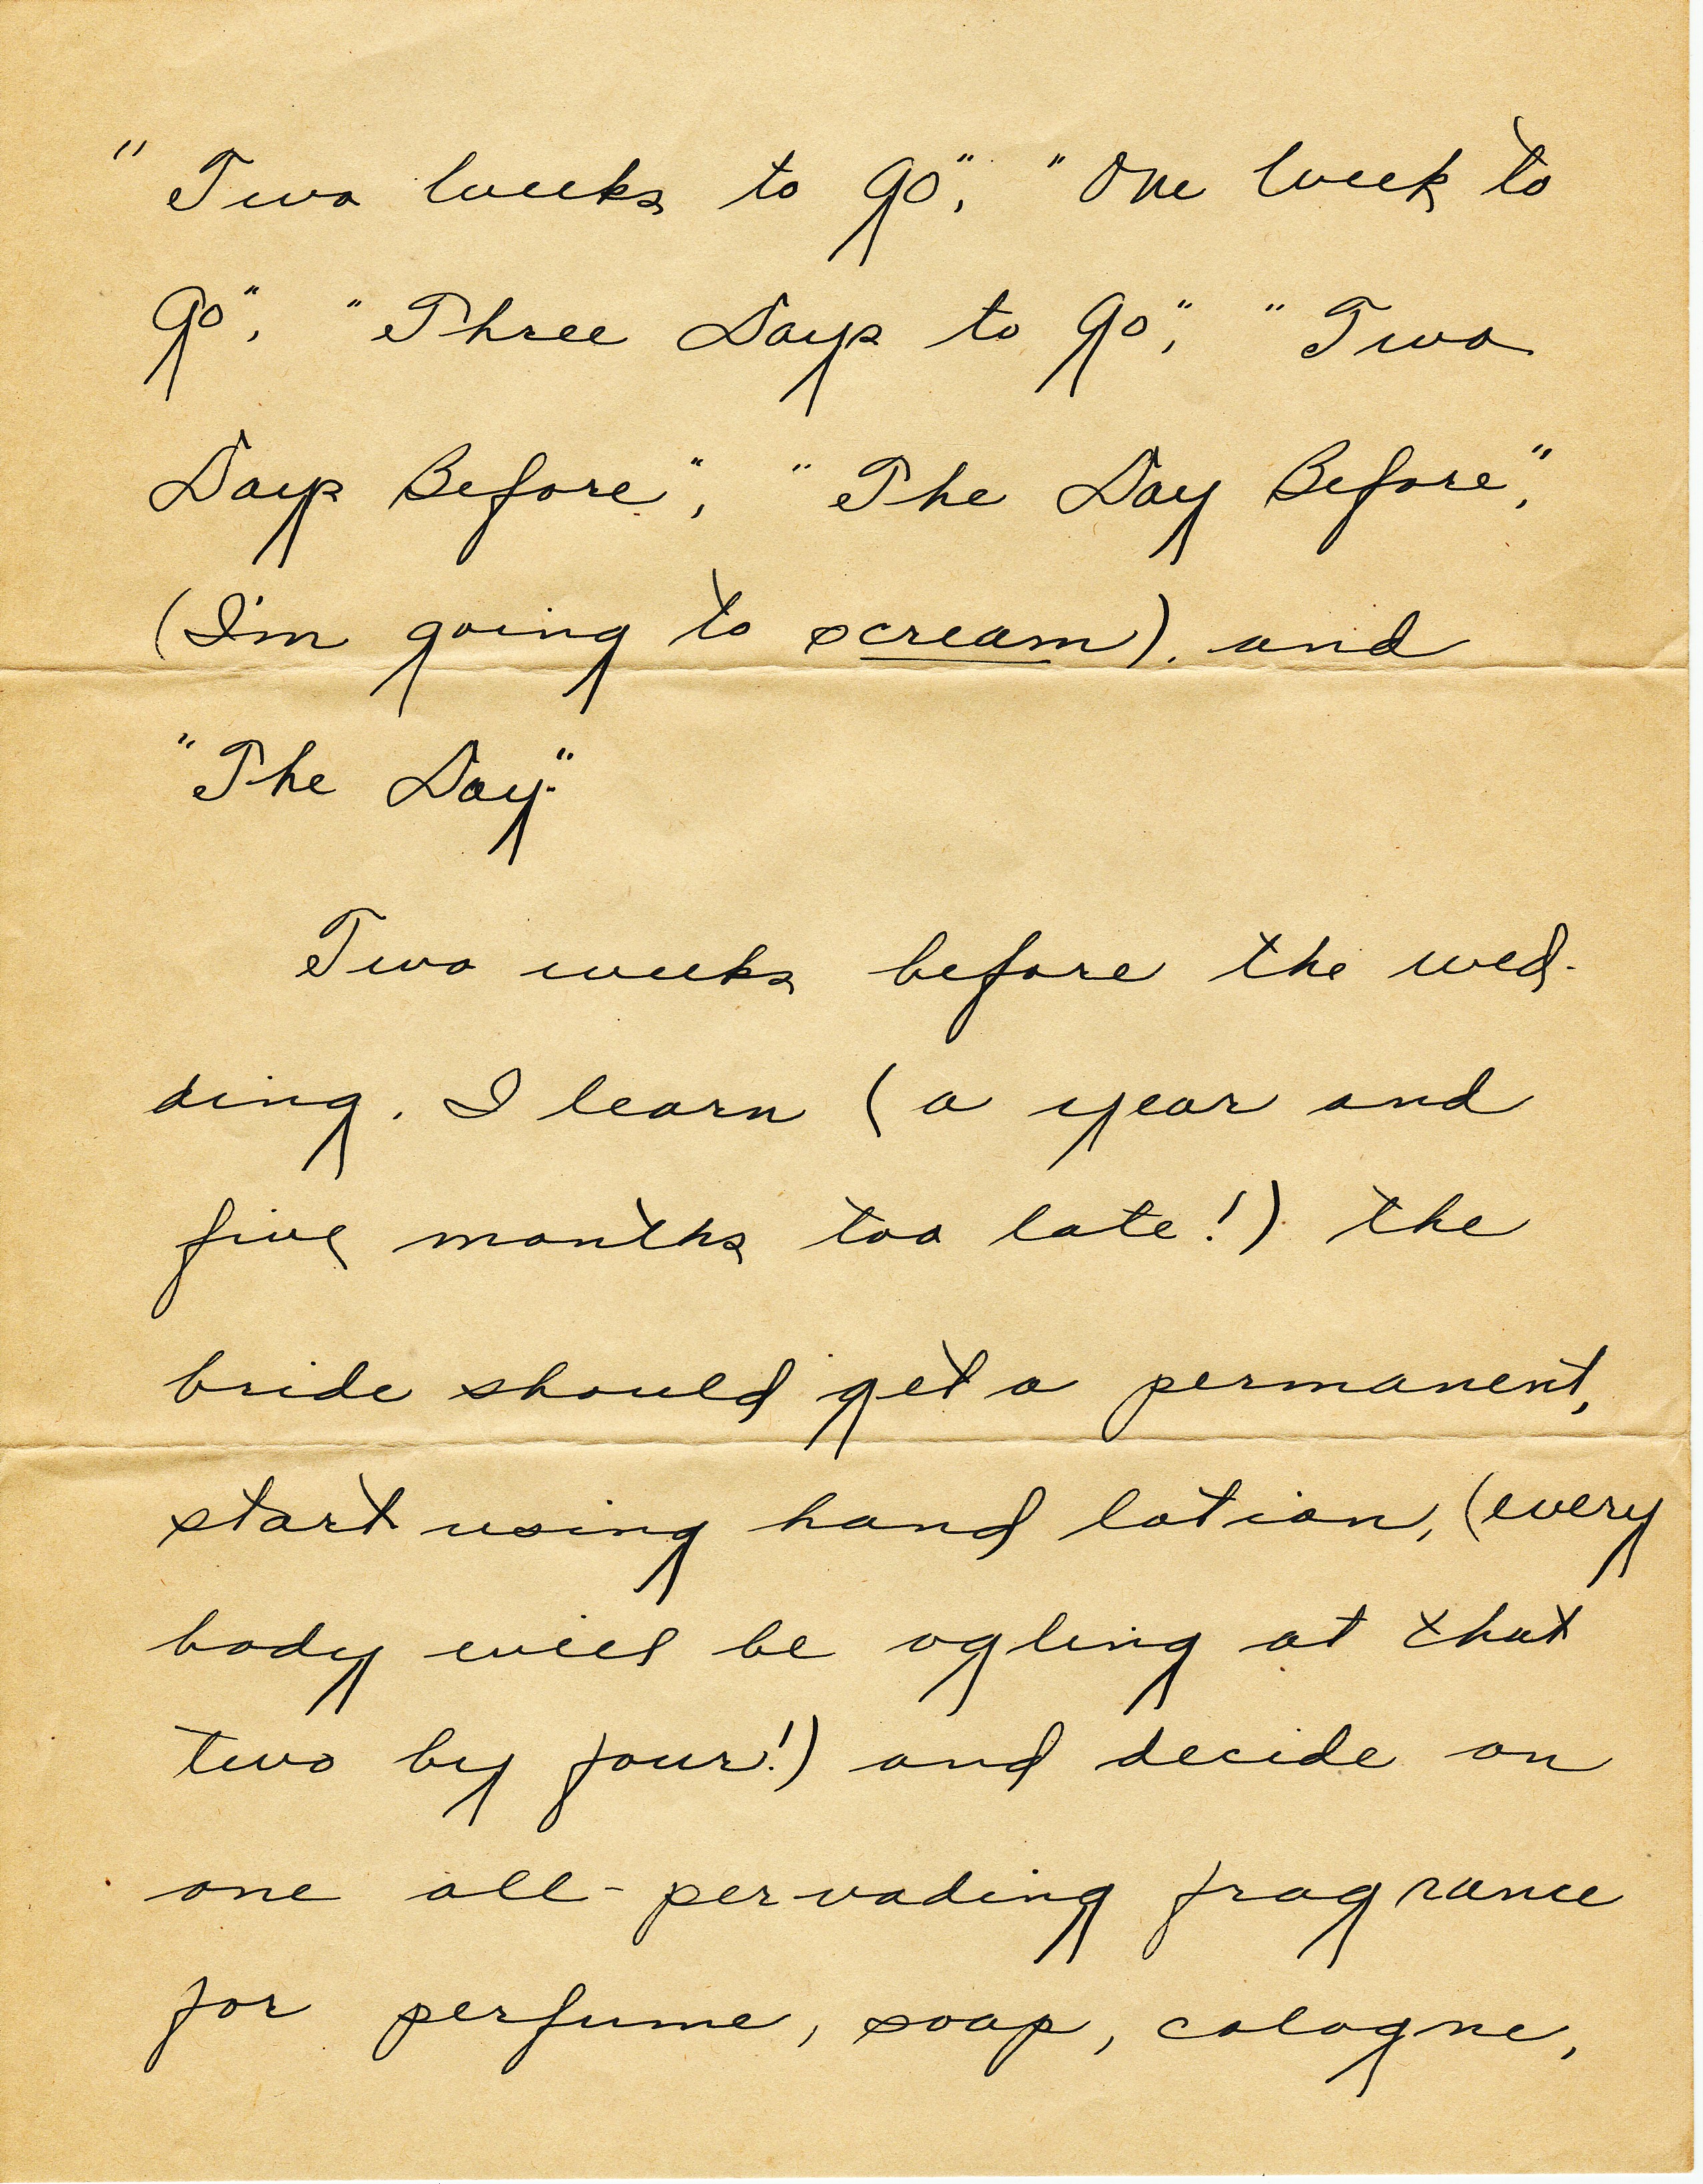 "Two weeks to go", "One week to
go", "Three Days to go", "Two
Days Before", "The Day Before",
(I'm going to scream). and
"The Day."
Two weeks before the wed-
ding. I learn (a year and
five months too late!) the
bride should get a permanent,
start using hand lotion, (every
body will be ogling at that
two by four!) and decide on
one all-pervading fragrance
for perfume, soap, cologne,